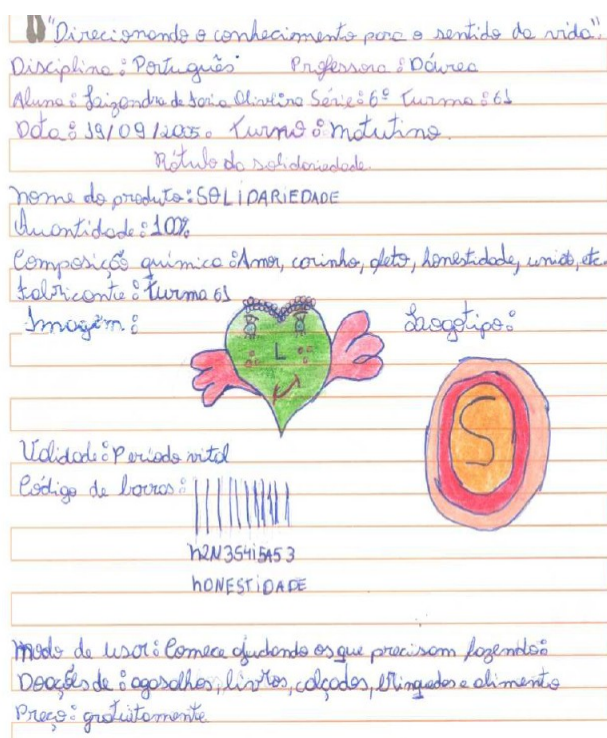 "Direcionando o conhecimento para o sentido da vida".
Disciplina: Português Professora: Dáurea
Aluna: de Oliveira Série: 6º Turma: 61
Data: 19/09/ Turno: matutino.
Rótulo da solidariedade.
nome do produto: SOLIDARIEDADE
Quantidade: 100%
Composição química: Amor, carinho, afeto, honestidade, união, etc.
Fabricante: Turma 61
Imagem: Logotipo:
L
S
Validade: Período vital
Código de barras:
h2N35415A53
hONESTIDADE
Modo de usar: Comece ajudando os que precisam fazendo:
Doações de: agasalhos, livros, calçados, brinquedos e alimento
Preço: gratuitamente